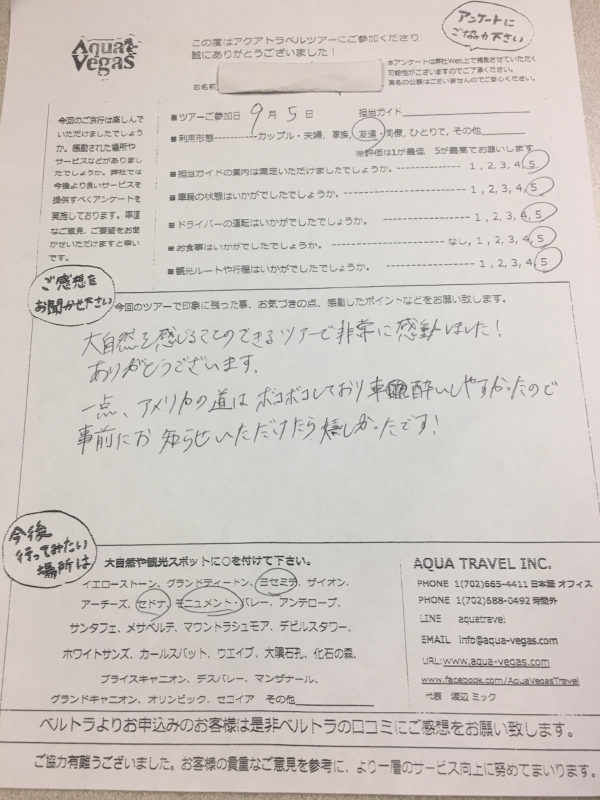 Aqua Vegas
この度はアクアトラベルツアーにご参加くださり
誠にありがとうございました！
アンケートに
ご協力下さい
お名前
本アンケートは弊社Web上で掲載させていただく
可能性がございますのでご了承ください。
実名の公表はございませんのでご安心ください。
今回のご旅行は楽しんで
いただけましたでしょう
か。感動された場所や
サービスなどがありまし
たでしょうか。弊社では
今後より良いサービスを
提供すべくアンケートを
実施しております。率直
なご意見、ご要望をお聞
かせいただけますと幸い
です。
■ツアーご参加日 9月 5日 担当ガイド
■利用形態-----------カップル・夫婦, 家族, 友達・同僚, ひとりで, その他
※評価は1が最低 5が最高でお願いします
■担当ガイドの案内は満足いただけましたでしょうか。 1, 2, 3, 4, 5
■車輌の状態はいかがでしたでしょうか。 1, 2, 3, 4, 5
■ドライバーの運転はいかがでしたでしょうか。 1, 2, 3, 4, 5
■お食事はいかがでしたでしょうか。 なし, 1, 2, 3, 4, 5
■観光ルートや行程はいかがでしたでしょうか。 1, 2, 3, 4, 5
ご感想を
お聞かせ下さい
今回のツアーで印象に残った事、お気づきの点、感動したポイントなどをお願い致します。
大自然を感じることのできるツアーで非常に感動しました！
ありがとうございます。
一点、アメリカの道はボコボコしており車酔いしやすかったので
事前にお知らせいただけたら嬉しかったです！
今後
行ってみたい
場所は
大自然や観光スポットに○を付けて下さい。
イエローストーン、グランドティートン、ヨセミテ、ザイオン、
アーチーズ、セドナ、モニュメント・バレー、アンテロープ、
サンタフェ、メサベルテ、マウントラシュモア、デビルスタワー、
ホワイトサンズ、カールスバット、ウエイブ、大隕石孔、化石の森、
ブライスキャニオン、デスバレー、マンザナール、
グランドキャニオン、オリンピック、セコイア その他
AQUA TRAVEL INC.
PHONE 1(702)665-4411 日本語 オフィス
PHONE 1(702)588-0492 時間外
LINE aquatravel
EMAIL info@aqua-vegas.com
URL:www.aqua-vegas.com
www.facebook.com/AquaVegasTravel
代表 渡辺 ミック
ベルトラよりお申込みのお客様は是非ベルトラの口コミにご感想をお願い致します。
ご協力有難うございました。お客様の貴重なご意見を参考に、より一層のサービス向上に努めてまいります。